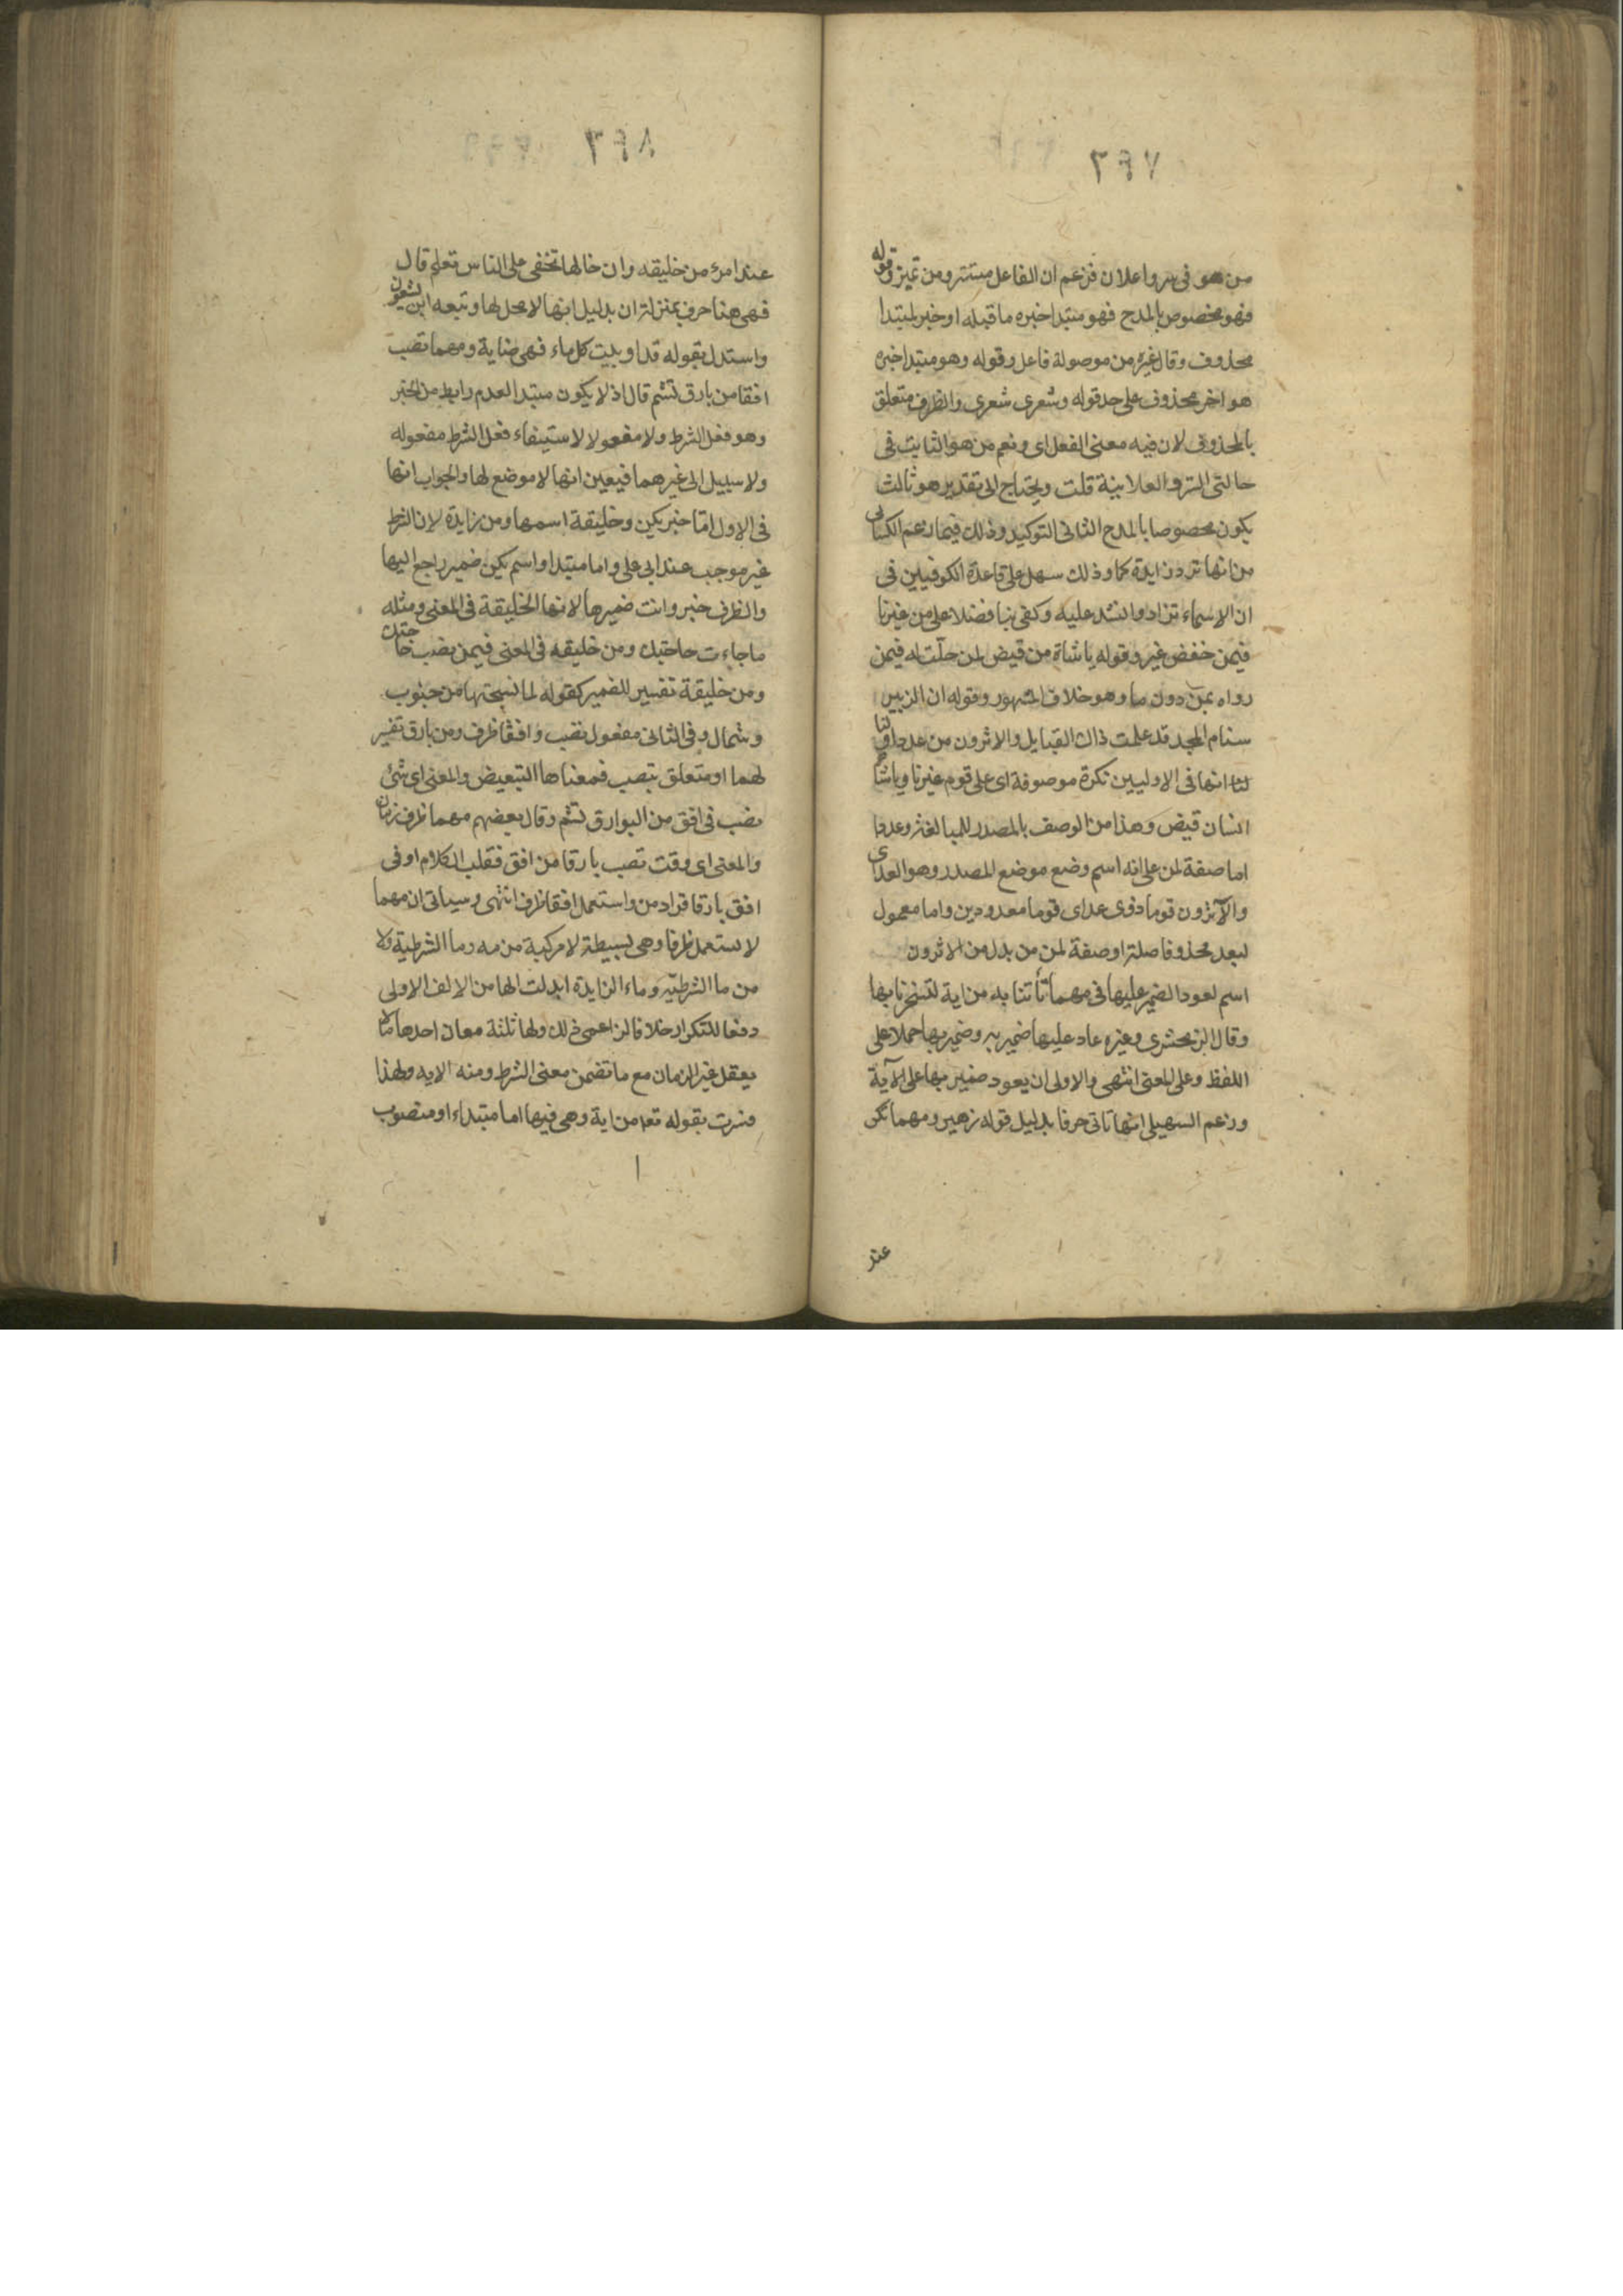 من هو فى سر واعلان فزعم ان الفاعل مستتر ومن تميز وقوله
فهو مخصوص بالمدح فهو مبتدا خبره ما قبله او خبر لمبتدا
محذوف وقال غيره من موصولة فاعل وقوله وهو مبتدا خبره
هو اخر محذوف على حد قوله وشعرى شعرى والظرف متعلق
بالمحذوف لان فيه معنى الفعل اى ونعم من هو الثابت فى
حالتى السر والعلانية قلت ويحتاج الى تقدير هو ثالث
يكون مخصوصا بالمدح الثانى التوكيد وذلك فيما زعم الكسائى
من انها ترد زايدة كما وذلك سهل على قاعدة الكوفيين فى
ان الاسماء تزاد وانشد عليه وكفى بنا فضلا على من غيرنا
فيمن خفض غير وقوله ياشاة من قيض لمن حلت له فيمن
رواه بمن دون ما وهو خلاف المشهور وقوله ان الزبير
سنام المجد قد علمت ذاك القبايل والاثرون من عددا ولنا
لنا انها فى الاوليين نكرة موصوفة اى على قوم غيرنا وياشاة
انسان قيض وهذا من الوصف بالمصدر للمبالغة وعددا
اما صفة لمن على انه اسم وضع موضع المصدر وهو العد اى
والاثرون قوما ذوى عد اى قوما معدودين واما معمول
ليعد محذوفا صلة او صفة لمن من بدل من الاثرون
اسم لعود الضمير عليها فى مهما تاتنا به من اية لتسحرنا بها
وقال الزمخشرى وغيره عاد عليها ضمير به وضمير بها حملا على
اللفظ وعلى المعنى انتهى والاولى ان يعود ضمير بها على الآية
وزعم السهيلى انها تاتى حرفا بدليل قوله زهير ومهما تكن
عند
٦٤٧
٦٤٨
عند امرئ من خليقه وان خالها تخفى على الناس تعلم قال
فهى هنا حرف بمنزلة ان بدليل انها لا محل لها وتبعه ابن يسعون
واستدل بقوله قد اوبيت كل ماء فهى ضاية ومهما تصب
افقا من بارق تشم قال اذ لا يكون مبتدا لعدم رابط من الخبر
وهو فعل الشرط ولا مفعولا لاستيفاء فعل الشرط مفعوله
ولا سبيل الى غيرهما فيعين انها لا موضع لها والجواب انها
فى الاول اما خبر يكن وخليقة اسمها ومن زايدة لان الشرط
غير موجب عند ابى على واما مبتدا واسم يكن ضمير راجع اليها
والظرف خبر وانث ضميرها لانها الخليقة فى المعنى ومثله
ما جاءت حاجتك ومن خليقه فى المعنى فيمن نصب حاجتك
ومن خليقة تفسير للضمير كقوله لما نسجتها من جنوب
وشمال وفى الثانى مفعول تصب وافقا ظرف ومن بارق تفسير
لهما او متعلق بتصب فمعناها التبعيض والمعنى اى شئ
تصب فى افق من البوارق تشم وقال بعضهم مهما ظرف زمان
والمعنى اى وقت تصب بارقا من افق فقلب الكلام او فى
افق بارقا فزاد من واستعمل افقا ظرفا انتهى وسياتى ان مهما
لا يستعمل ظرفا وهى بسيطة لا مركبة من مه وما الشرطية ولا
من ما الشرطيه وماء الزايدة ابدلت الها من الالف الاولى
دفعا للتكرار خلافا لزاعمى ذلك ولها ثلثة معان احدها ما لا
يعقل غير الزمان مع ما تضمن معنى الشرط ومنه الايه ولهذا
فسرت بقوله تع من اية وهى فيها اما مبتداء او منصوب